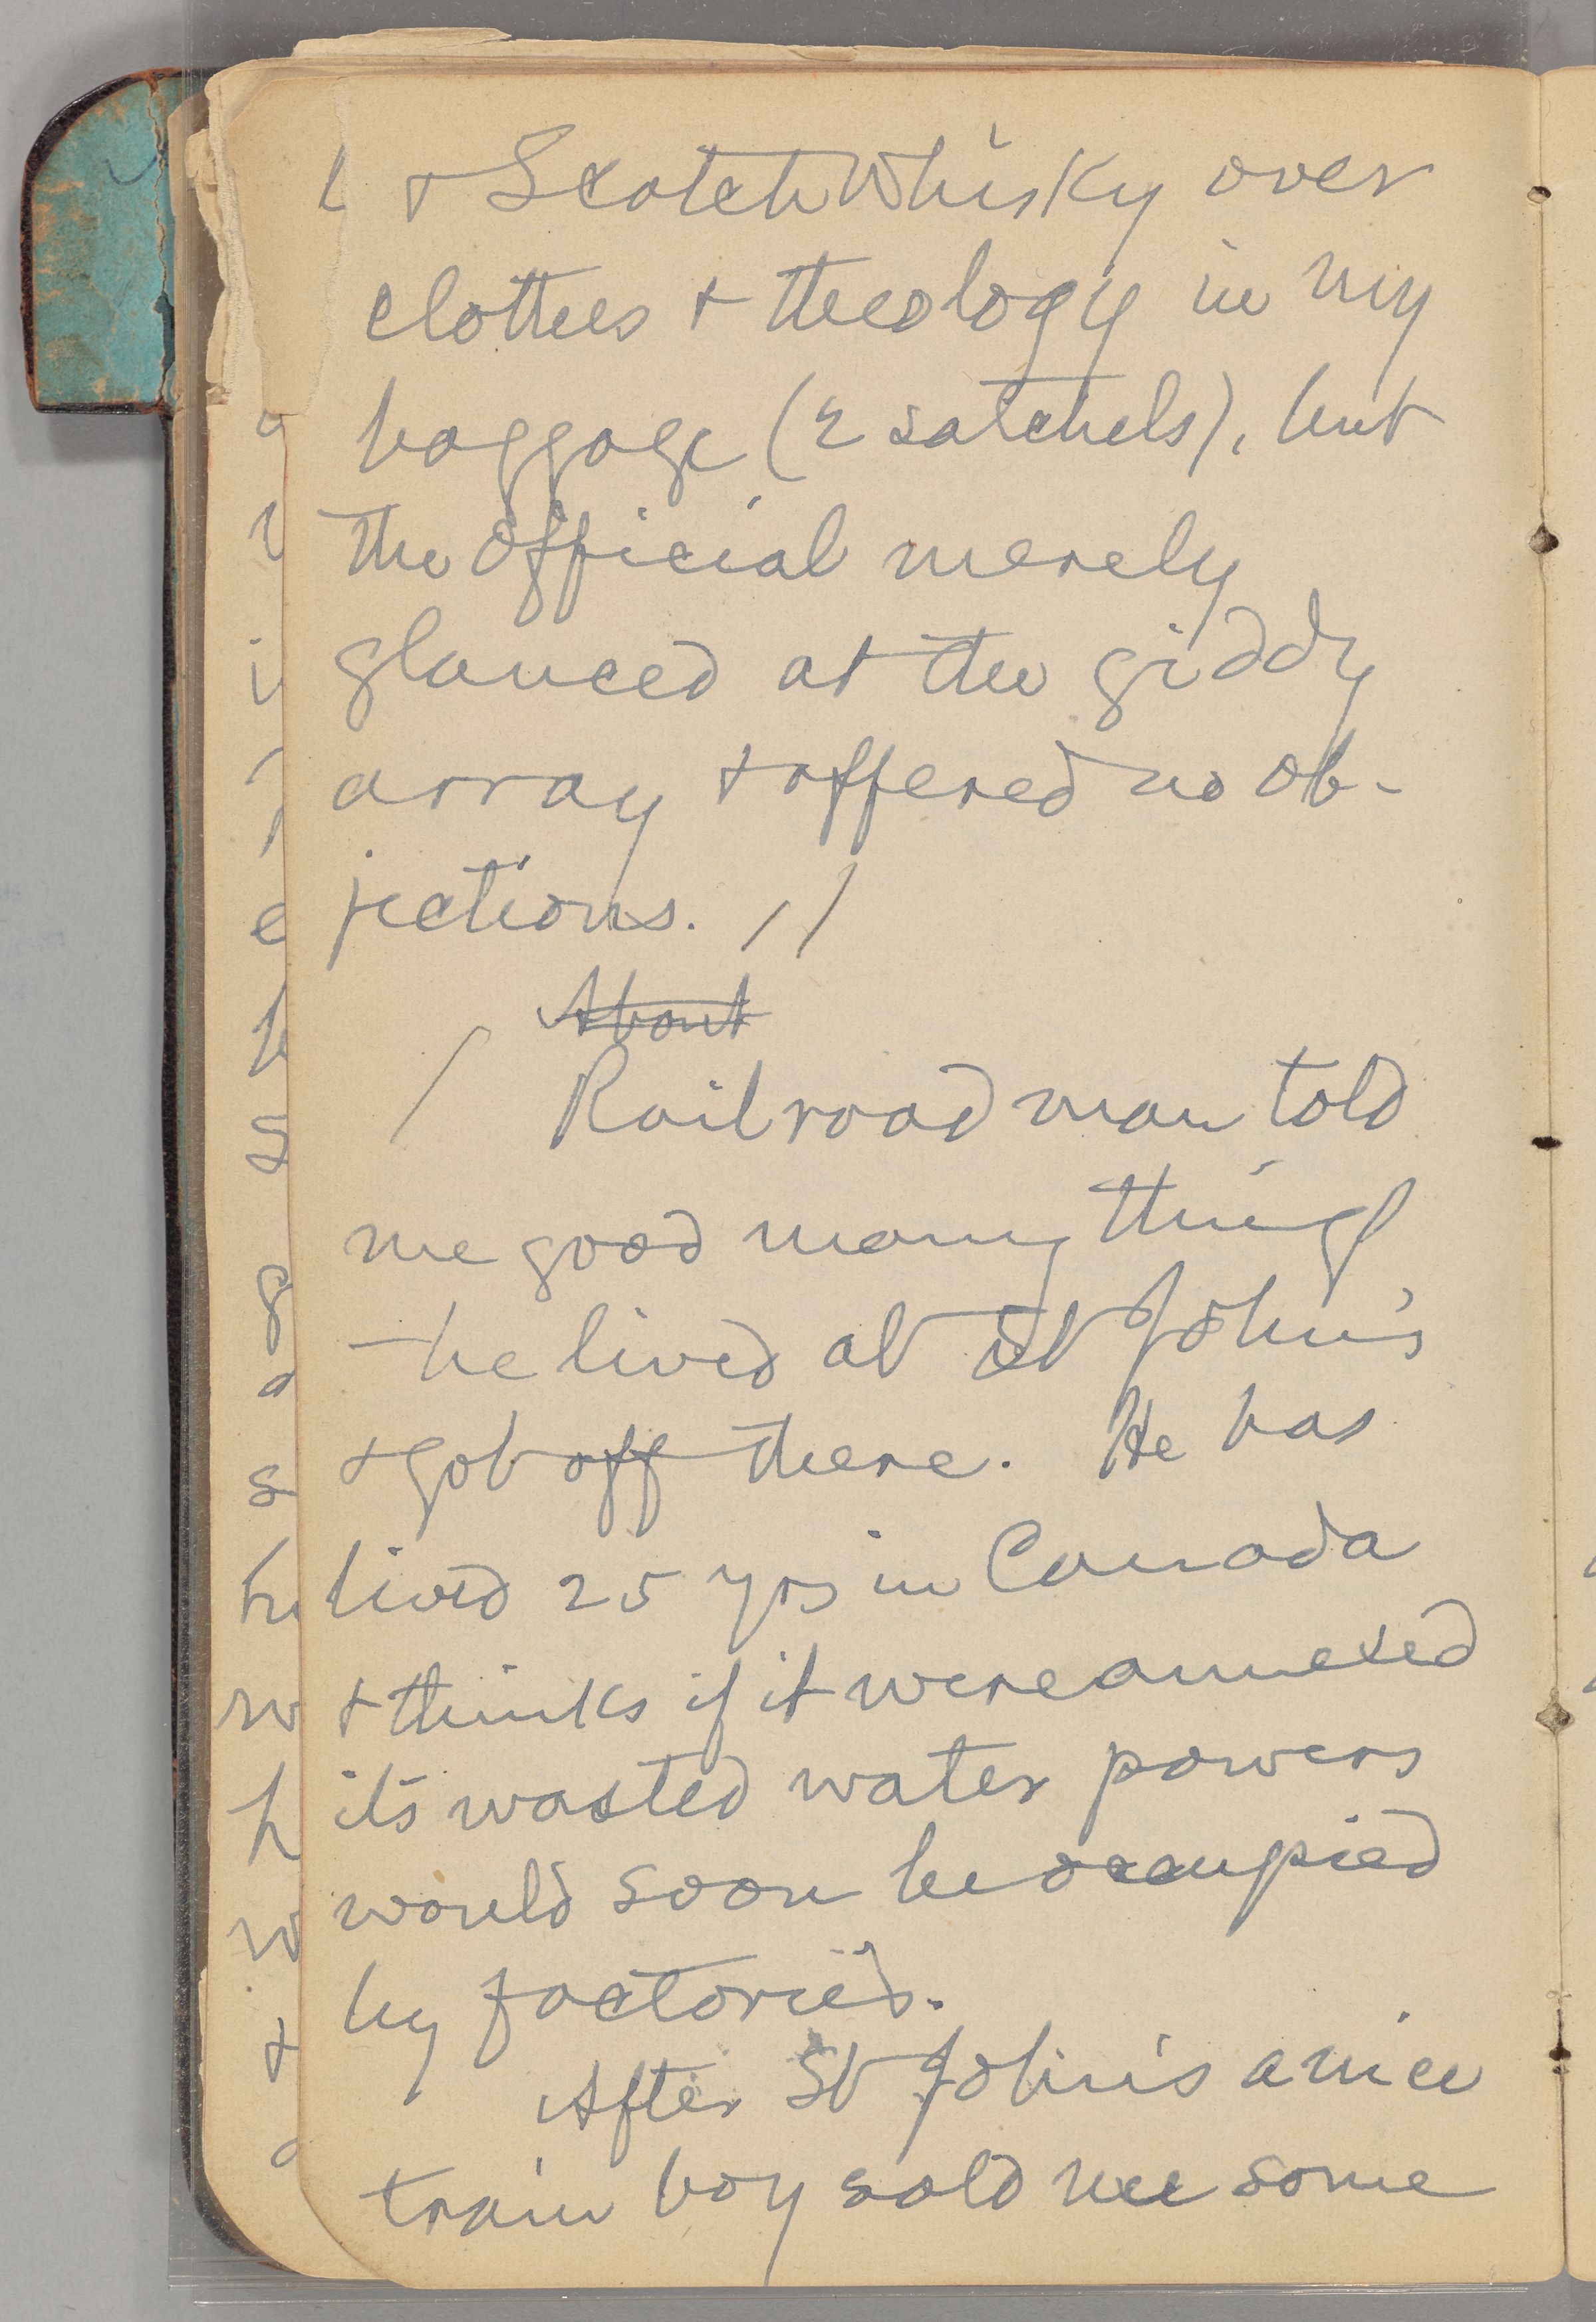 & Scotch Whisky over
clothes & theology in my
baggage (2 satchels), but
the official merely
glanced at the giddy
array & offered no ob-
jections. //
About
/ Railroad man told
me good many things
- he lived at St John's
& got off there. He has
lived 25 yrs in Canada
& thinks if it were annexed
its wasted water powers
would soon be occupied
by factories.
After St John's a nice
train boy sold me some